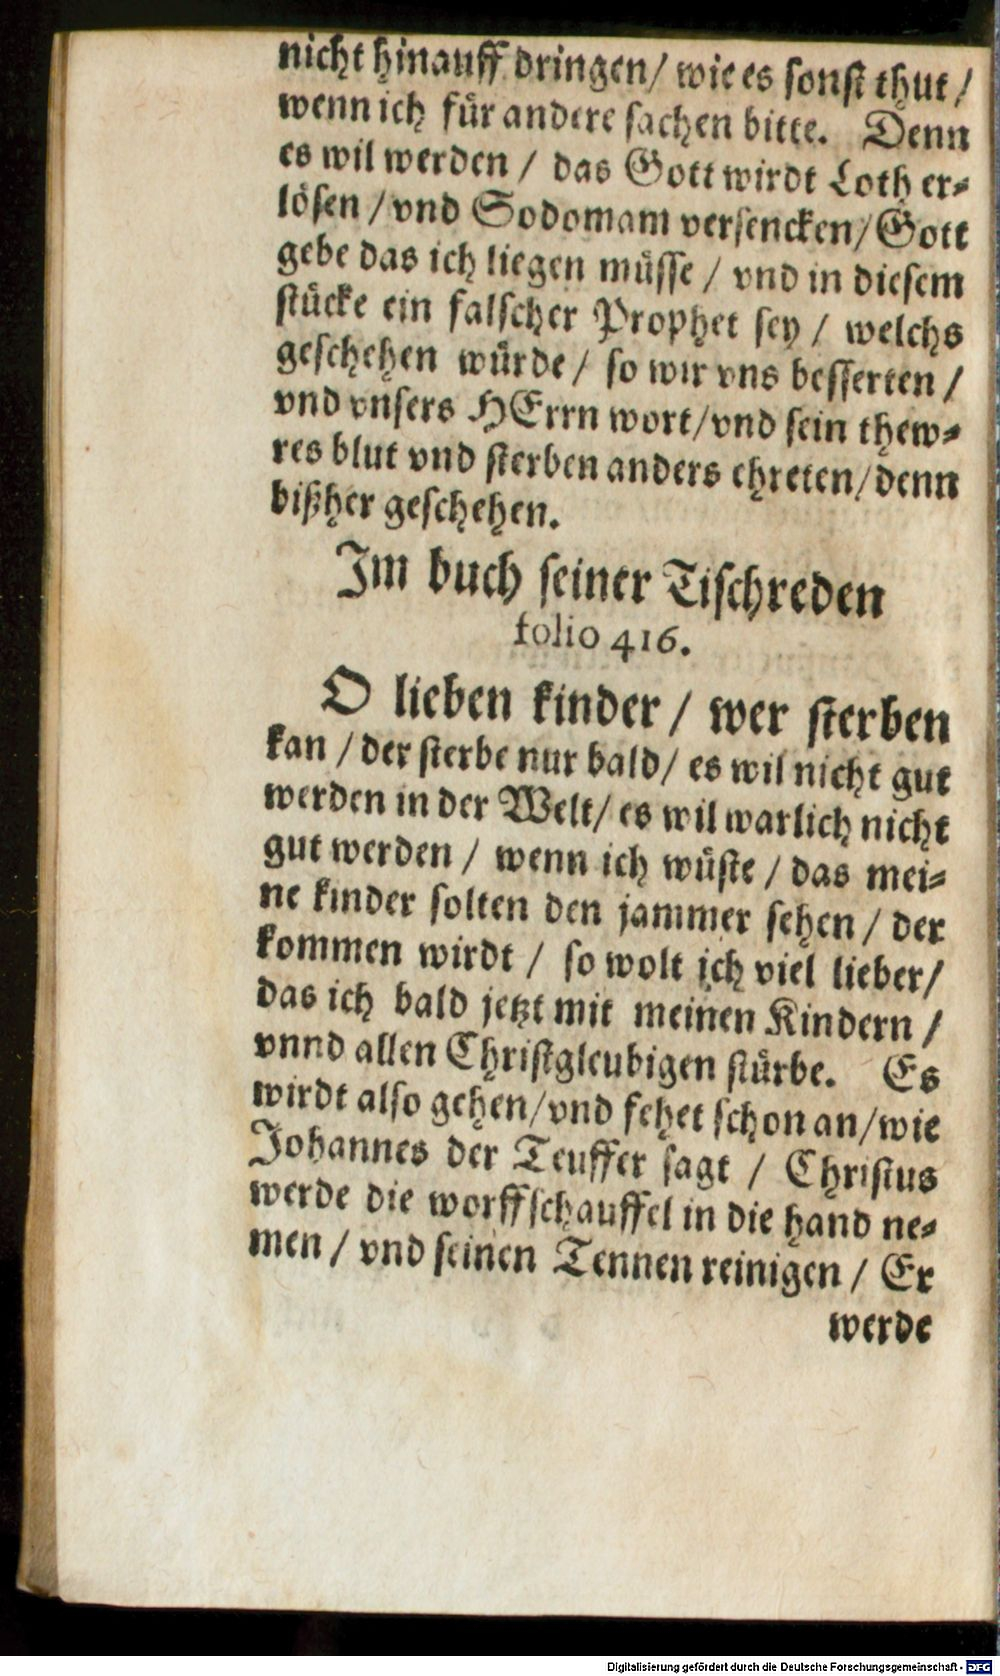 nicht hinauff dringen/ wie es sonst thut/
wenn ich für andere sachen bitte. Denn
es wil werden / das Gott wirdt Loth er⸗
lösen / vnd Sodomam versencken/ Gott
gebe das ich liegen müsse / vnd in diesem
stücke ein falscher Prophet sey / welchs
geschehen würde / so wir vns besserten /
vnd vnsers HErrn wort/vnd sein thew⸗
res blut vnd sterben anders ehreten/denn
bißher geschehen.
Im buch seiner Tischreden
folio 416.
O lieben kinder / wer sterben
kan / der sterbe nur bald/ es wil nicht gut
werden in der Welt/ es wil warlich nicht
gut werden / wenn ich wüste / das mei⸗
ne kinder solten den jammer sehen / der
kommen wirdt / so wolt ich viel lieber/
das ich bald jetzt mit meinen Kindern /
vnnd allen Christgleubigen stürbe. Es
wirdt also gehen/vnd fehet schon an/wie
Johannes der Teuffer sagt / Christus
werde die worffschauffel in die hand ne⸗
men / vnd seinen Tennen reinigen / Er
werde
Digitalisierung gefördert durch die Deutsche Forschungsgemeinschaft - DFG